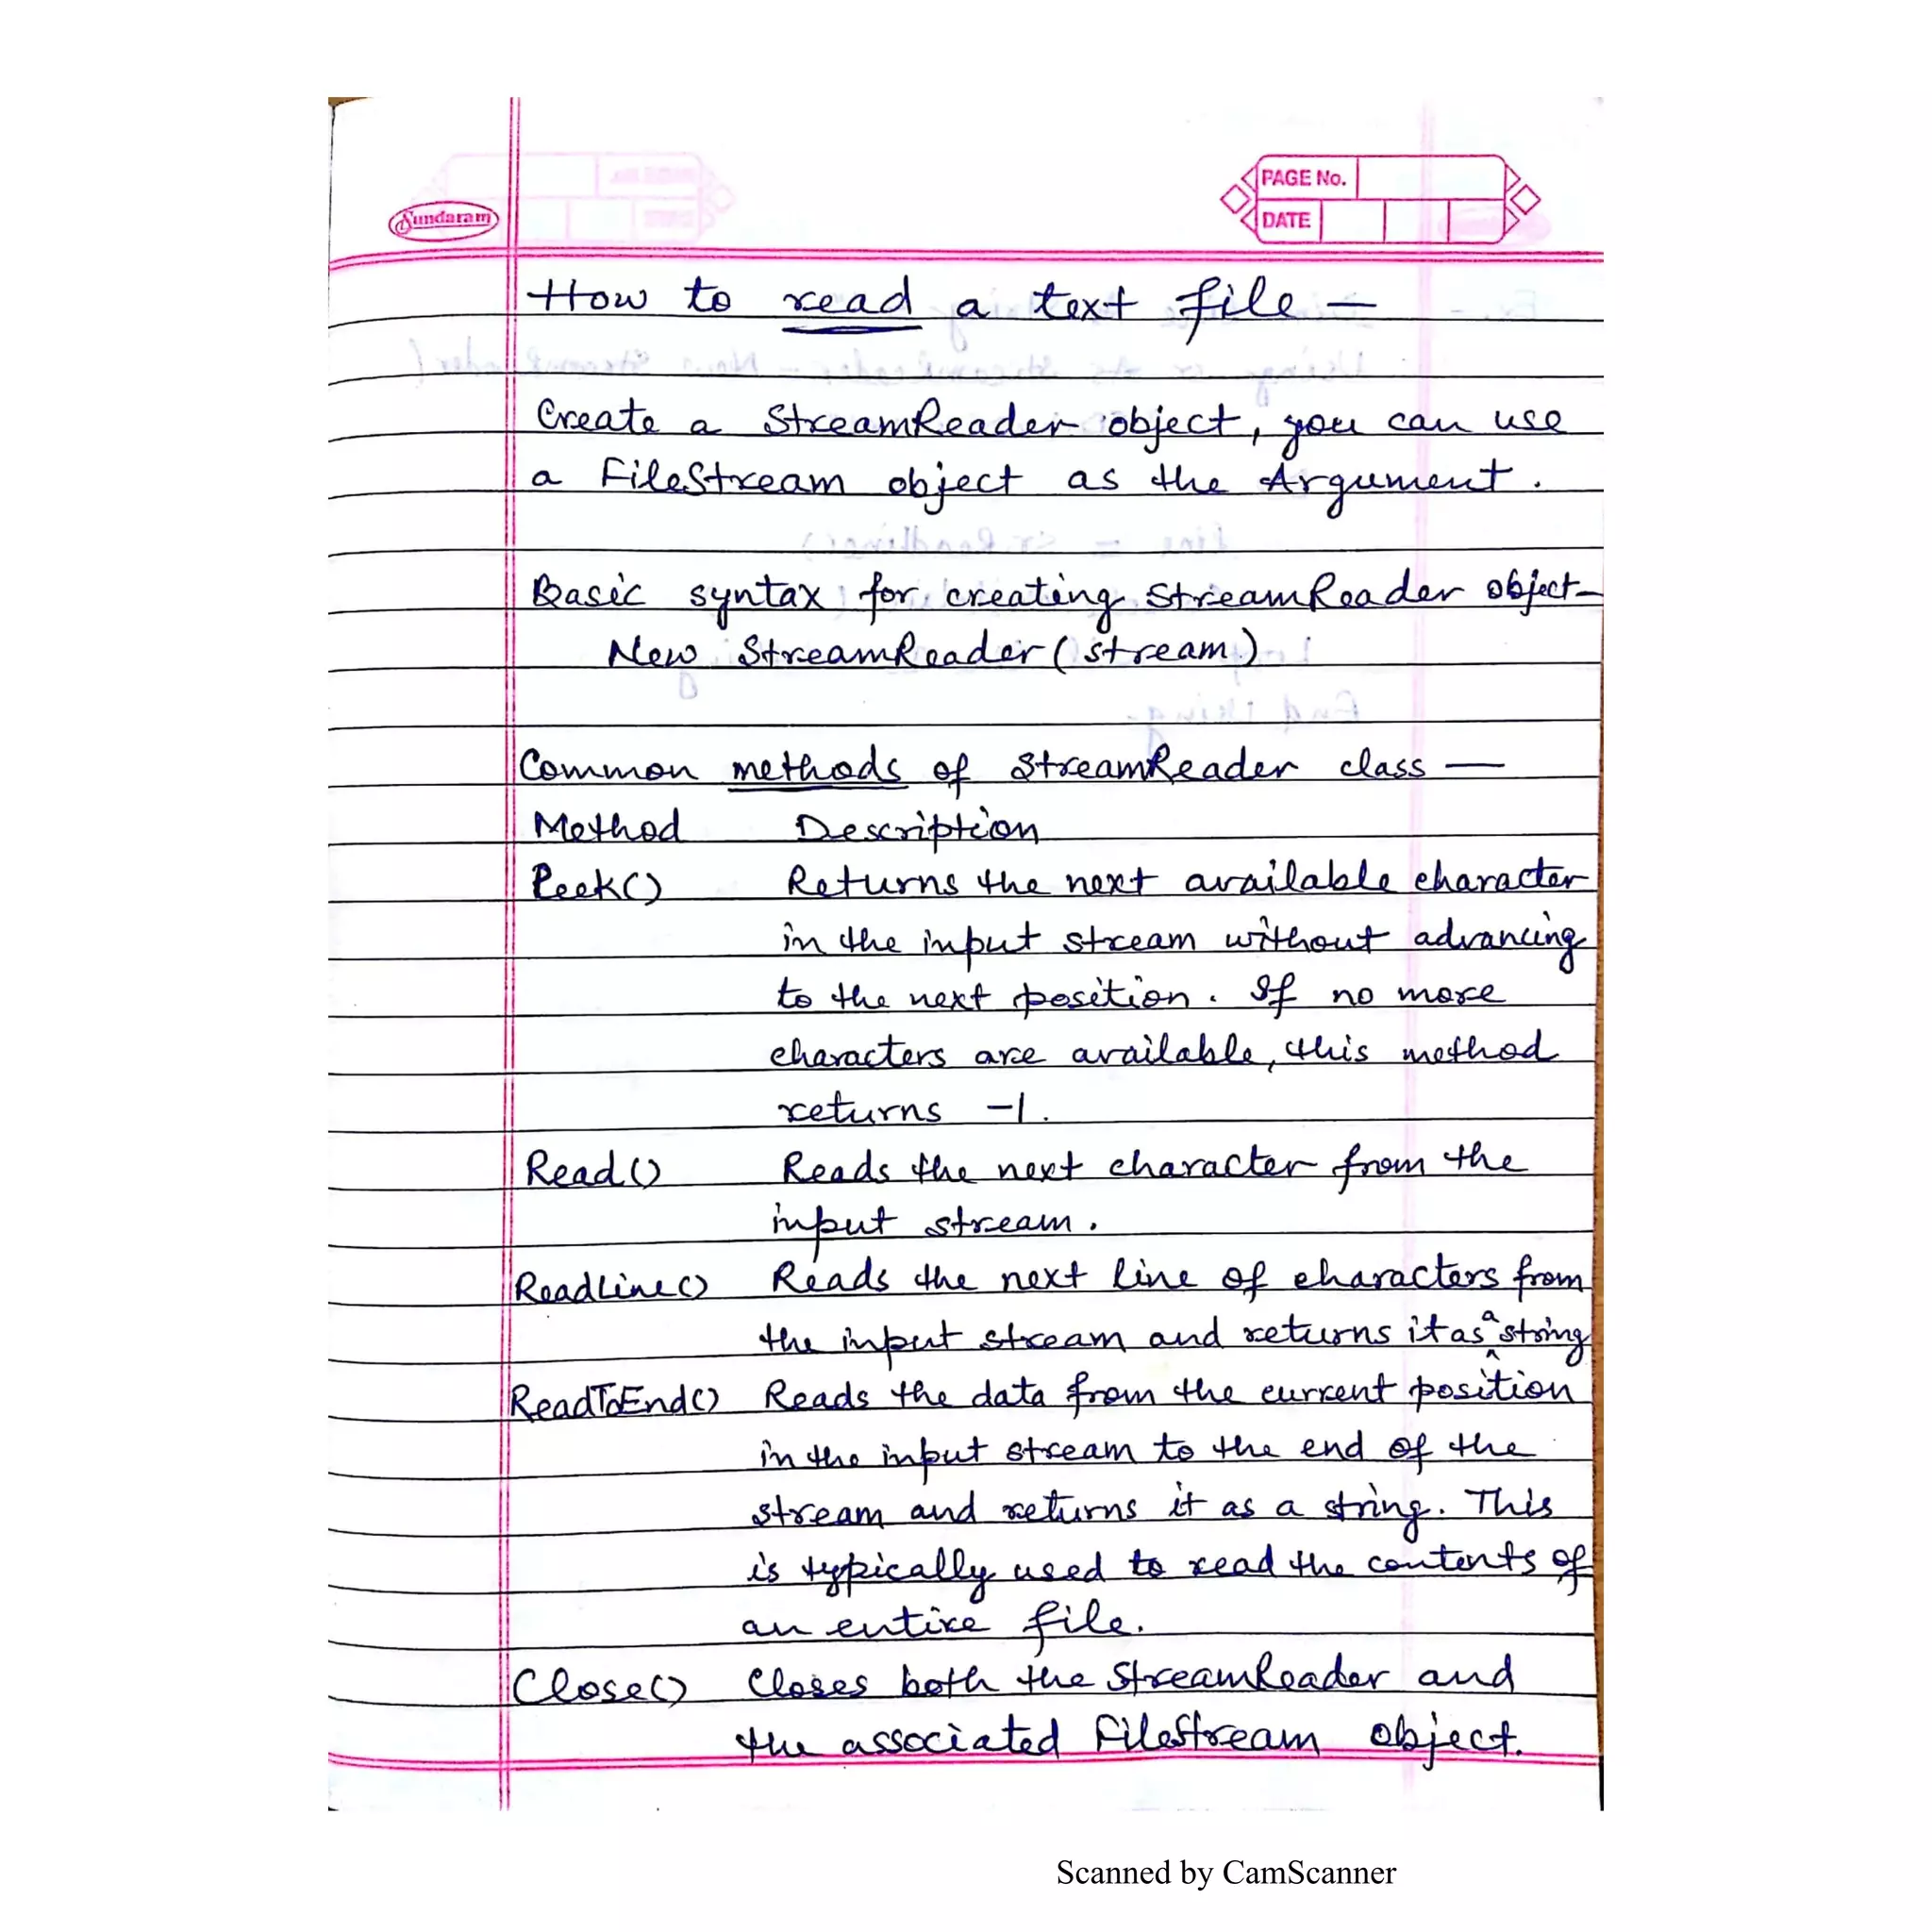 Sundaram
PAGE No.
DATE
How to read a text file —
Create a StreamReader object, you can use
a FileStream object as the Argument.
Basic syntax for creating StreamReader object-
New StreamReader(stream)
Common methods of StreamReader class —
Method Description
Peek() Returns the next available character
in the input stream without advancing
to the next position. If no more
characters are available, this method
returns -1.
Read() Reads the next character from the
input stream.
ReadLine() Reads the next line of characters from
the input stream and returns it as a string
ReadToEnd() Reads the data from the current position
in the input stream to the end of the
stream and returns it as a string. This
is typically used to read the contents of
an entire file.
Close() Closes both the StreamReader and
the associated FileStream object.
Scanned by CamScanner